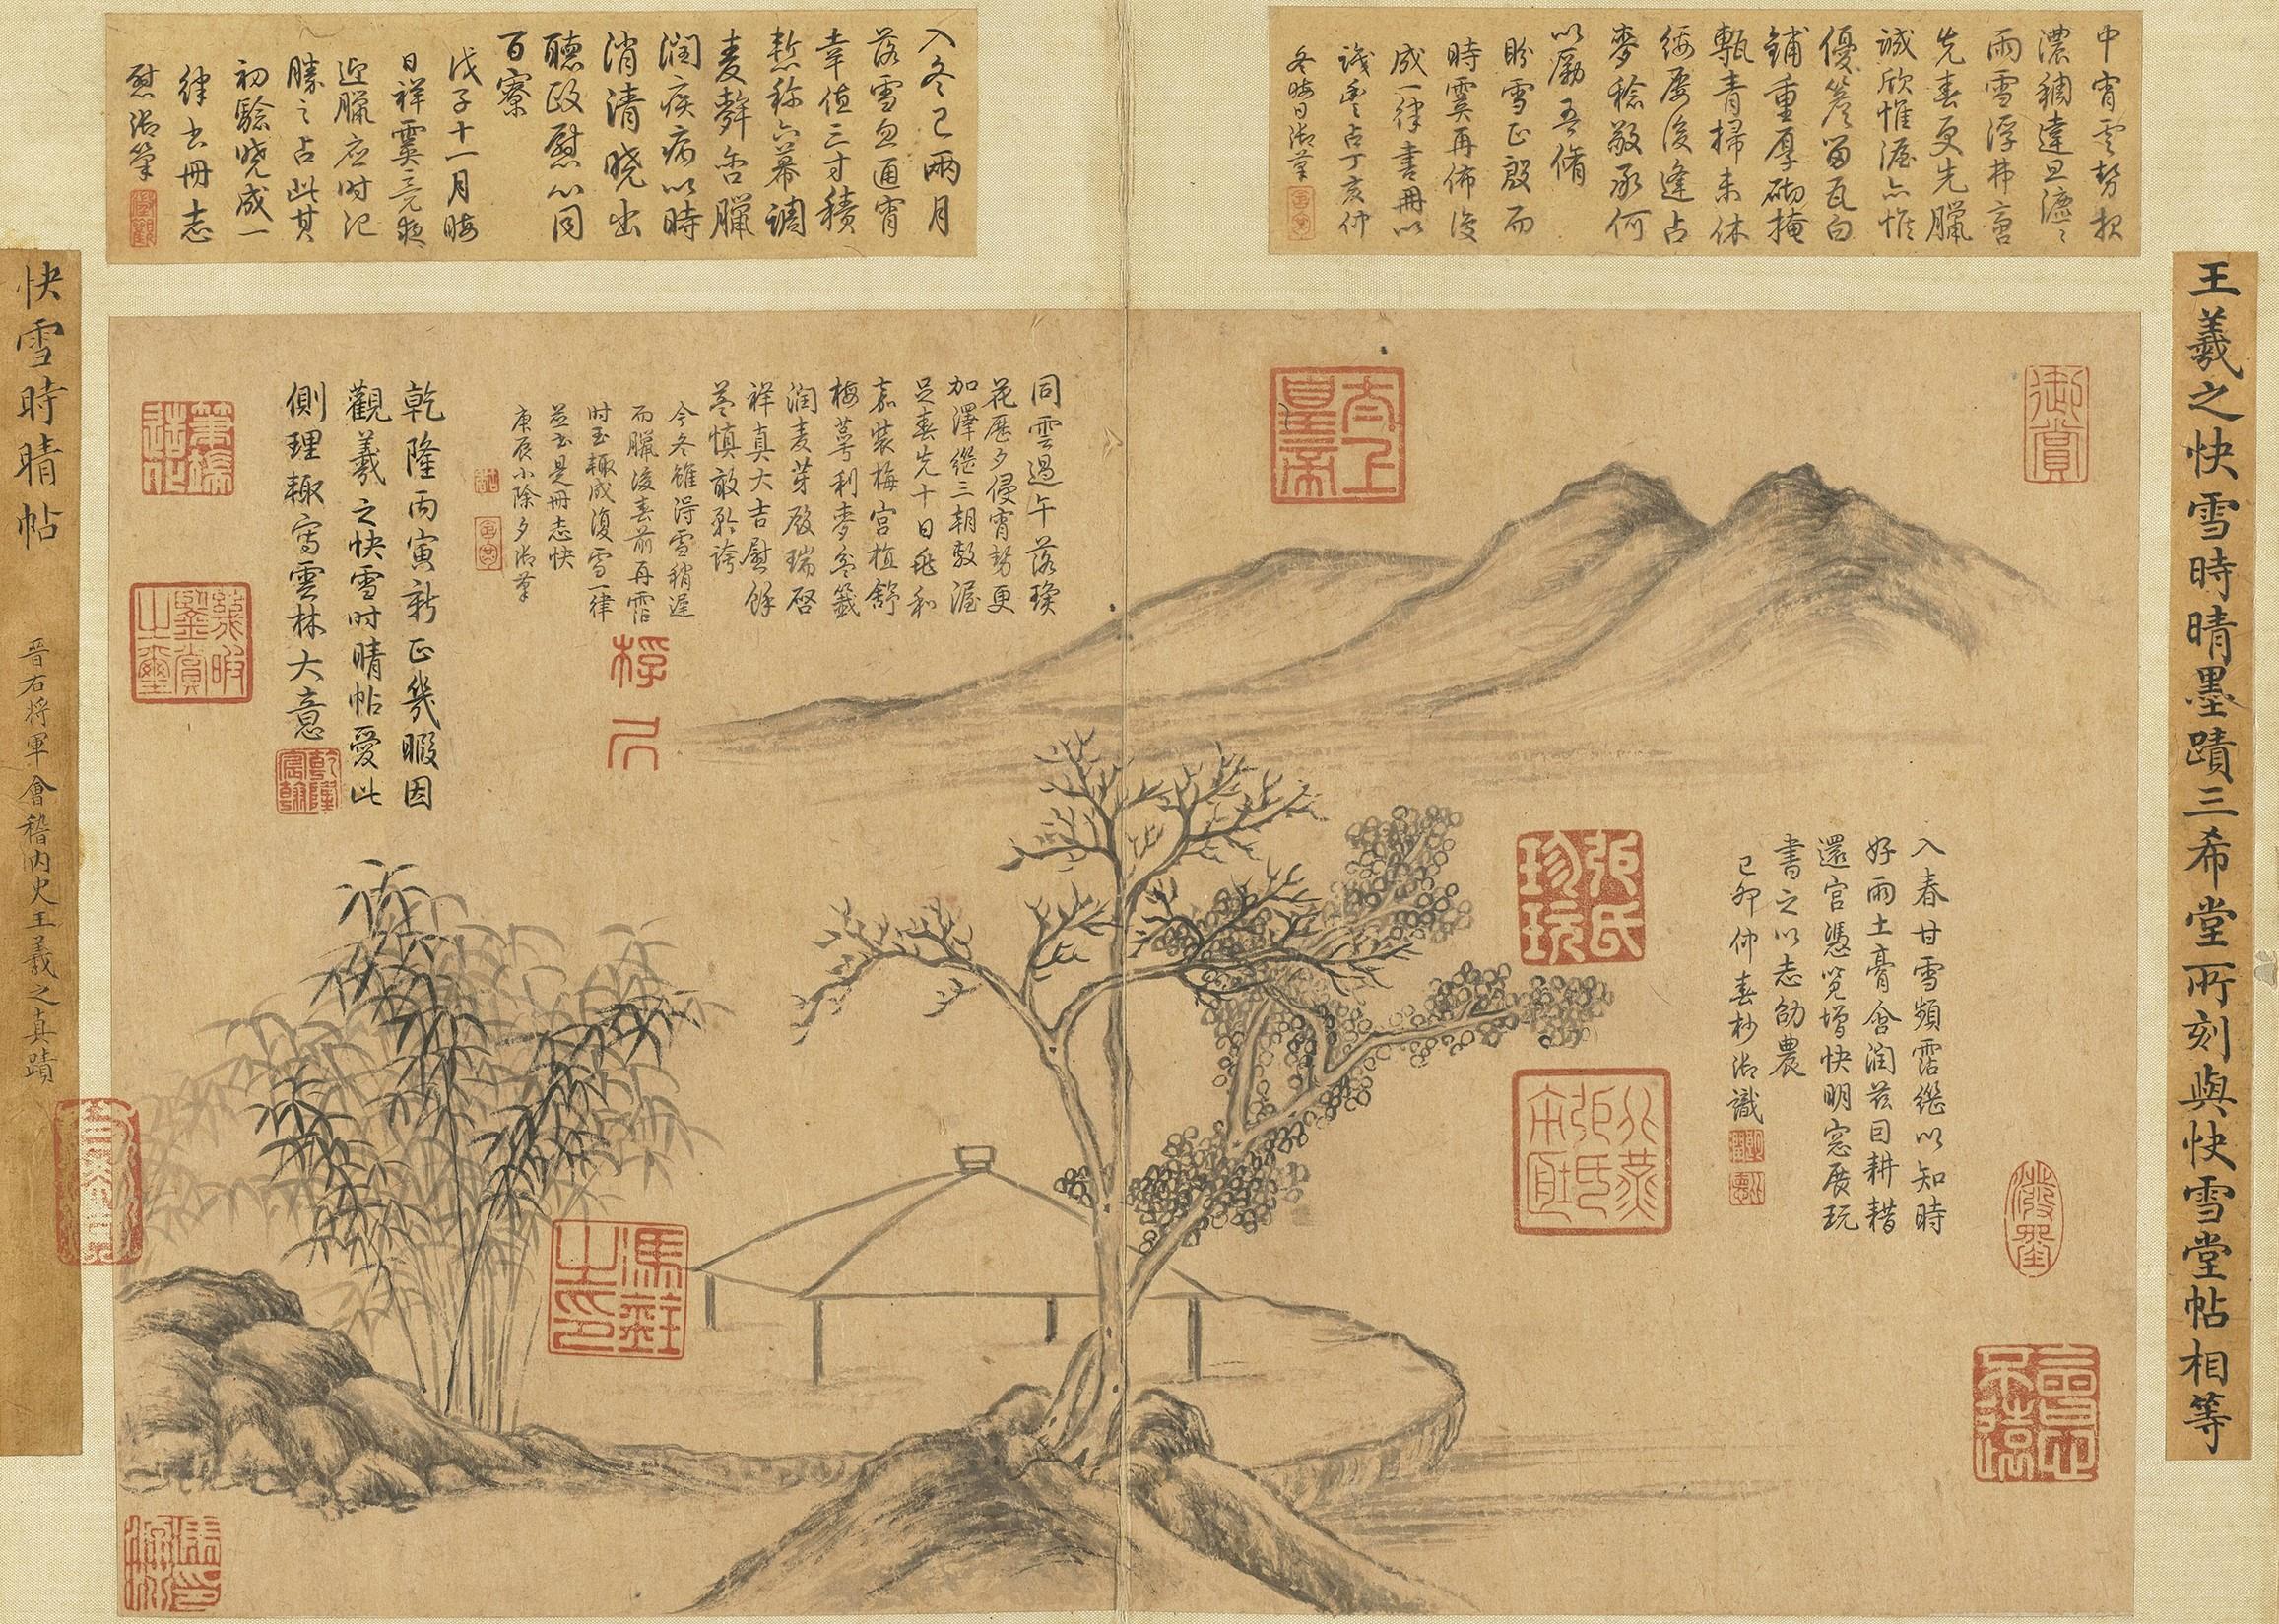 王羲之快雪時晴墨蹟三希堂所刻與快雪堂帖相等
中宵雲勢報
濃稠達旦瀌瀌
雨雪浮弗啻
先春更先臘
誠欣惟渥亦惟
優簷留瓦白
鋪重厚砌掩
甎青掃未休
綏屢後逢占
麥稔敬承何
以勵吾脩
盼雪正殷而
時霙再佈復
成一律書冊以
識豐占丁亥仲
冬晦日御筆
入冬已兩月
落雪忽通宵
幸值三寸積
慙稱六幕調
麦辦含臘
潤疾病以時
消清曉出
聽政慰心同
百寮
戊子十一月晦
日祥霙竟夜
迎臘应时记
勝之占此其
初驗曉成一
律书冊志
慰御筆
御賞
太上皇帝
入春甘雪頻霑繼以知時
好雨土膏含潤茲目耕耤
還宮憑覽增快明窓展玩
書之以志劭農
己卯仲春杪御識
張氏珍玩
北燕張氏
同雲過午落瓊
花歷夕侵宵勢更
加澤繼三朝敷渥
足春先十日兆和
嘉裝梅宮植舒
梅萼利麥盆籤
潤麦芽殷瑞啓
祥真大吉慰餘
益慎敢矜誇
今冬雖得雪稍遲
而臘後春前再霑
时玉輙成復雪一律
並书是冊志快
庚辰小除夕御筆
乾隆丙寅新正幾暇因
觀羲之快雪时晴帖愛此
側理輙寫雲林大意
乾隆宸翰
筆端造化
幾暇鑒賞之璽
馮銓之印
快雪時晴帖
晋右将軍會稽內史王羲之真蹟